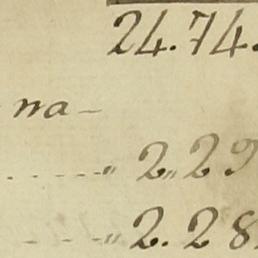 24.74.
na-
" 2,, 29
" 2. 28